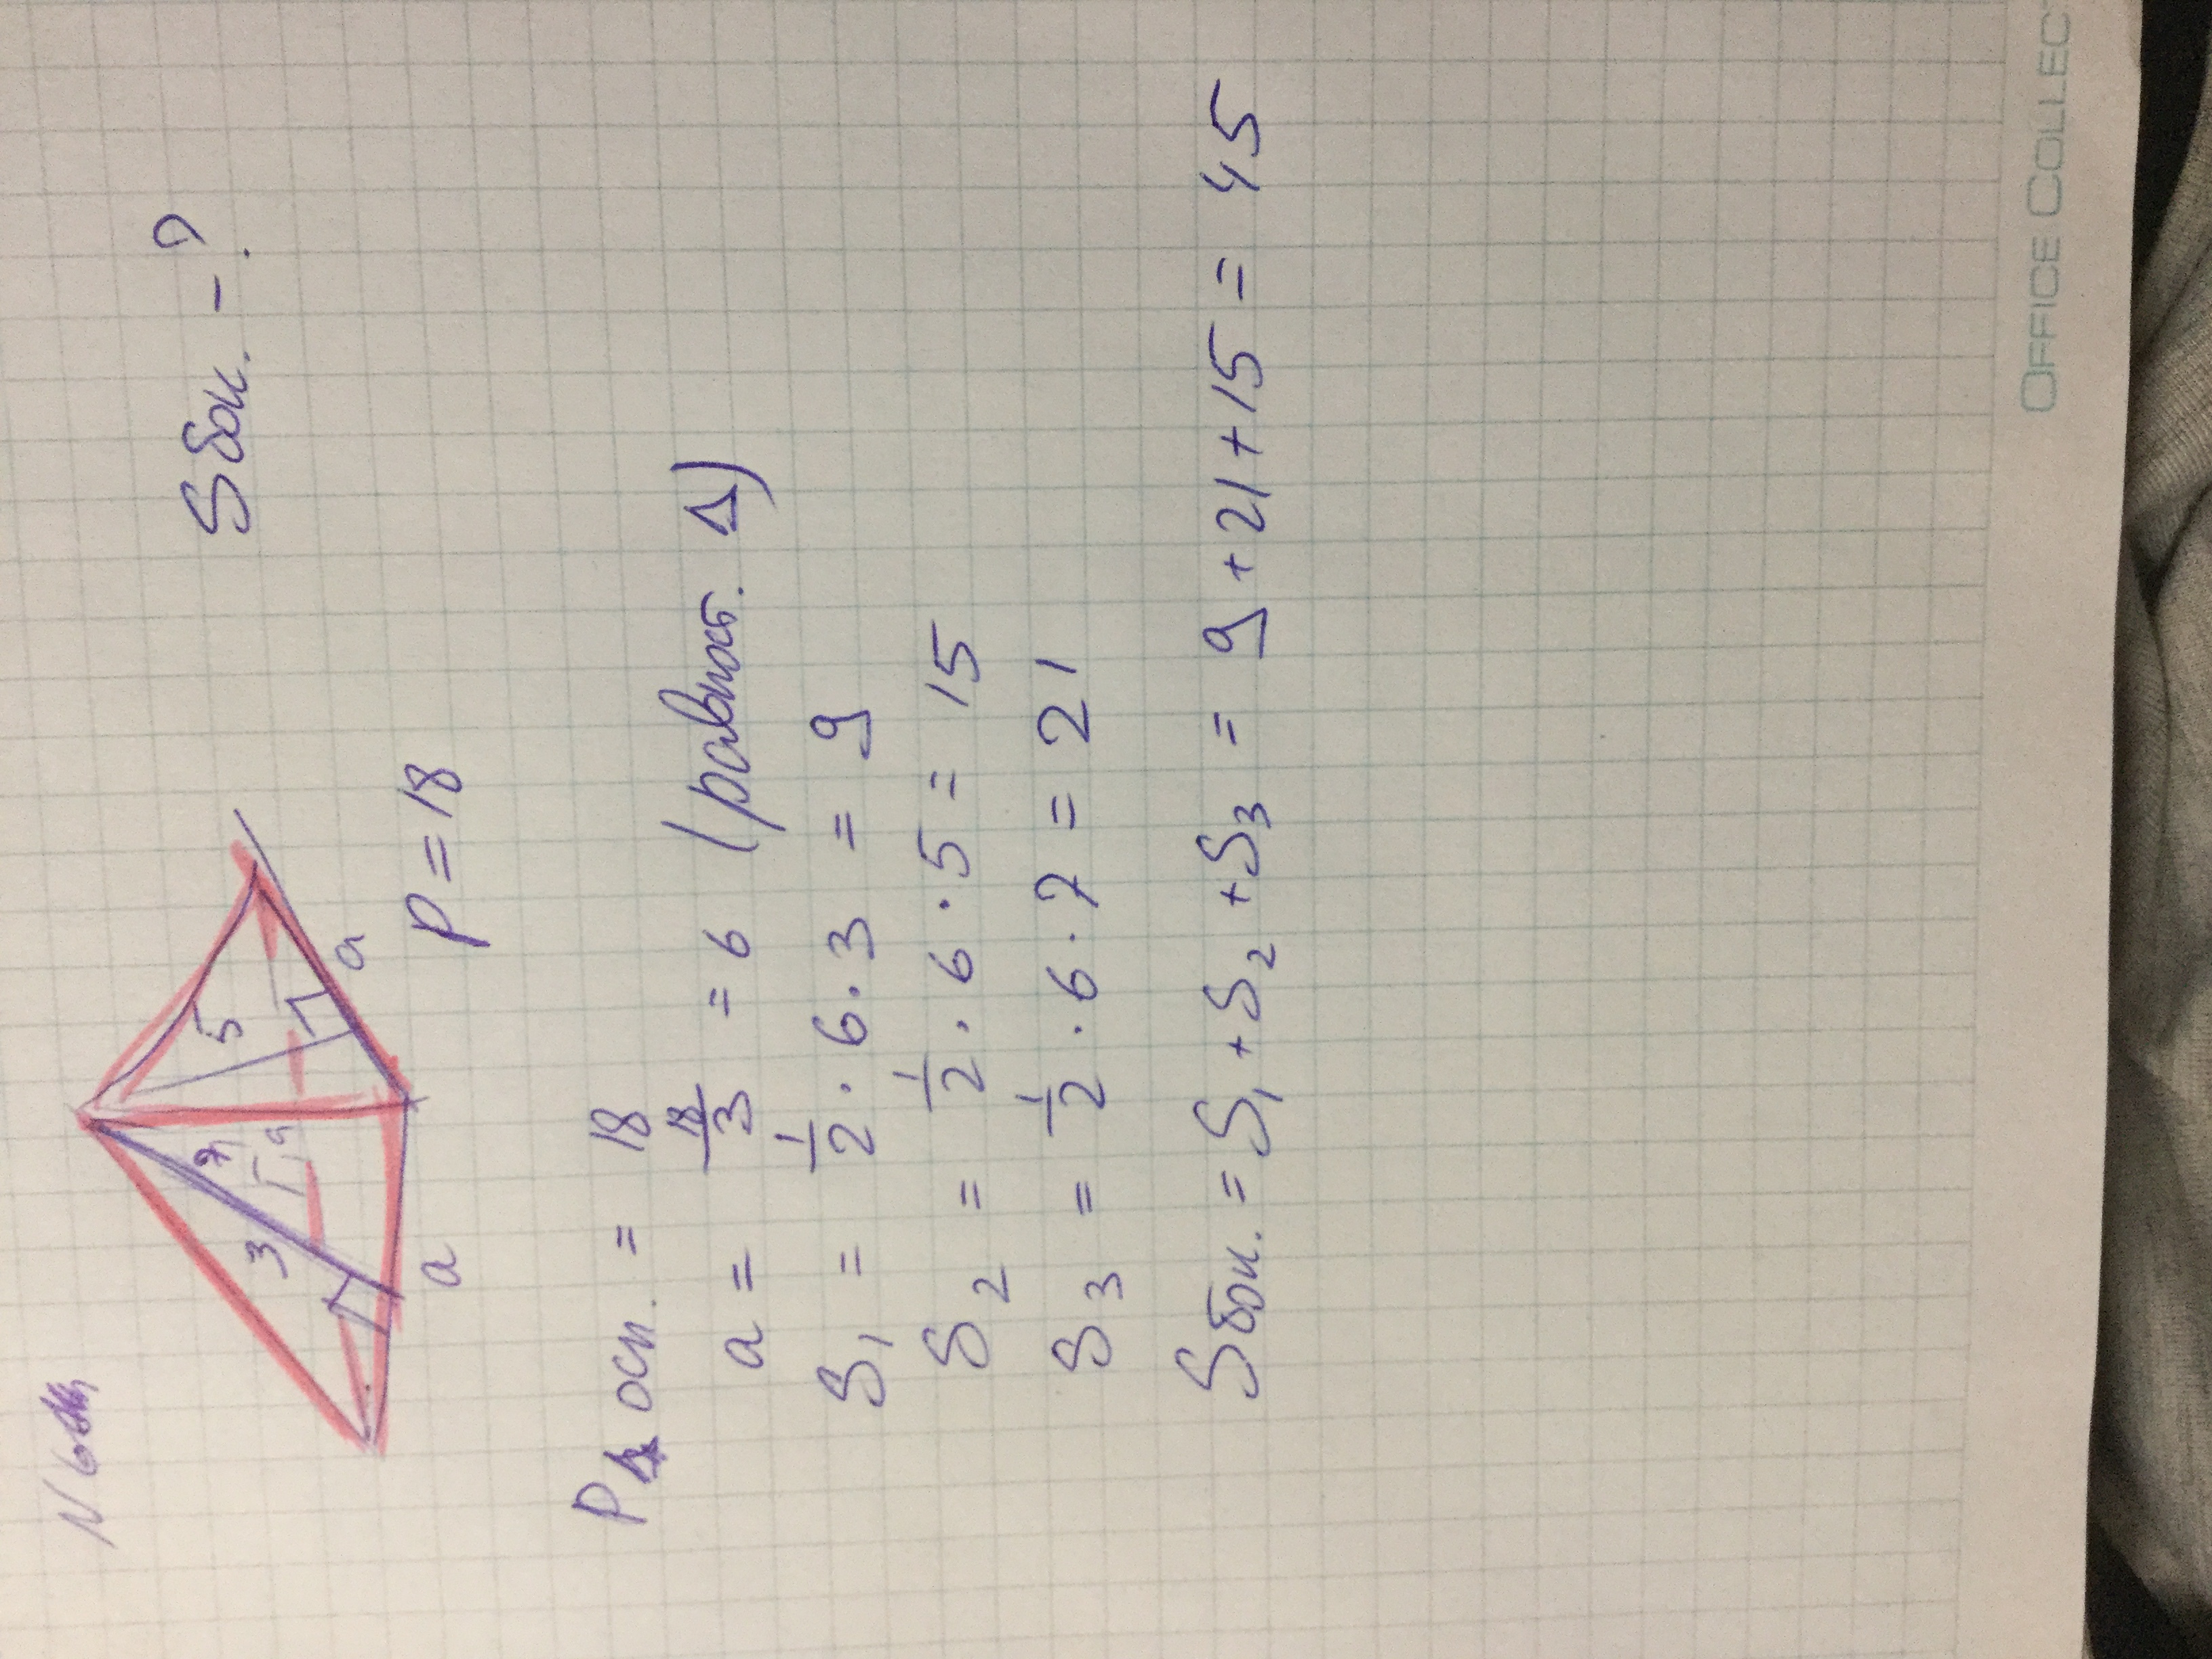 N 6
Sбок. - ?
5
7
3
a
a
a
P = 18
P△ осн. = 18
a = 18/3 = 6 (равност. △)
S₁ = 1/2 · 6 · 3 = 9
S₂ = 1/2 · 6 · 5 = 15
S₃ = 1/2 · 6 · 7 = 21
Sбок. = S₁ + S₂ + S₃ = 9 + 21 + 15 = 45
OFFICE COLLEC